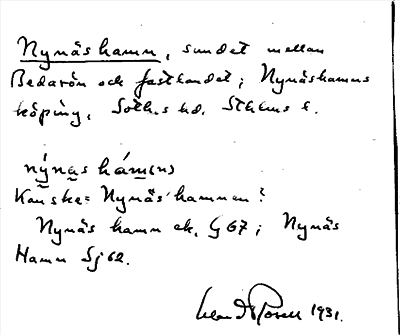 Nynäshamn, sundet mellan
Bedarön och fastlandet; Nynäshamns
köping, Soth.s hd. Sthlms l.
nýnas hám(n)
Kanske = Nynäs' hamnen?
Nynäs hamn ek. G 67; Nynäs
Hamn Sj 62.
1931.